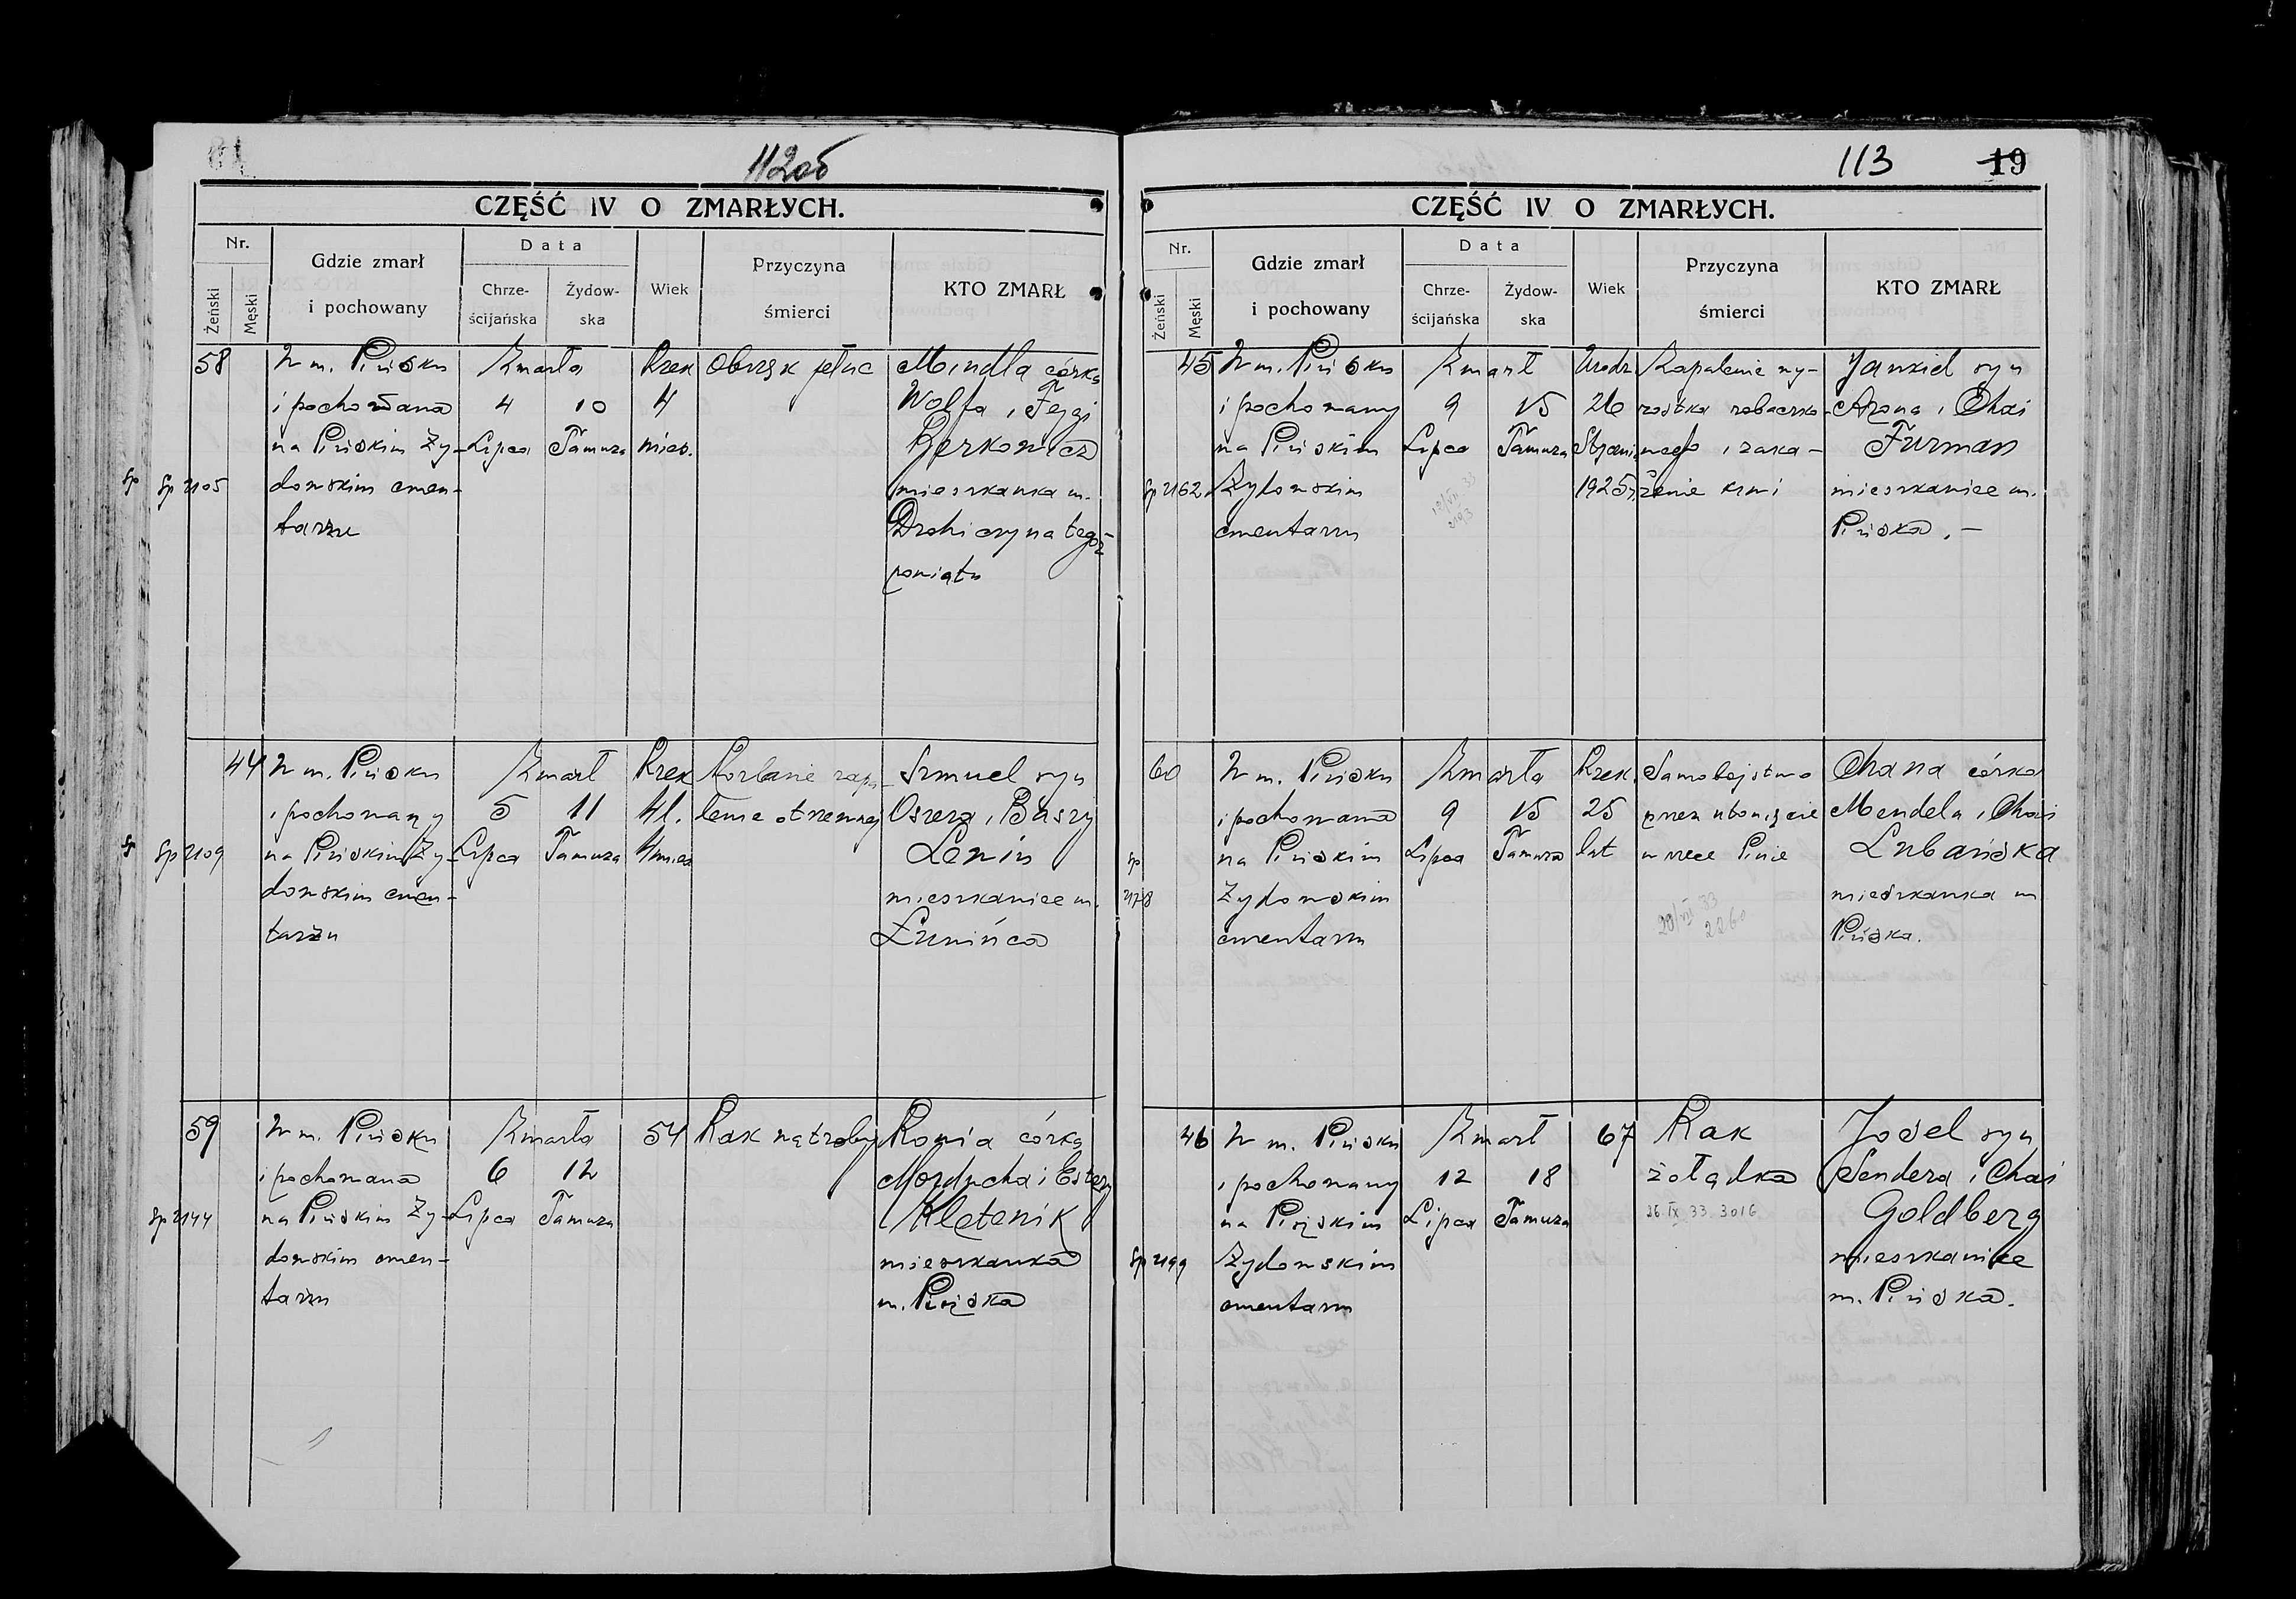 112 об
CZĘŚĆ IV O ZMARŁYCH.
Nr.
Żeński
Męski
Gdzie zmarł
i pochowany
Data
Chrze-
ścijańska
Żydow-
ska
Wiek
Przyczyna
śmierci
KTO ZMARŁ
58
W m. Pińsku
i pochowana
na Pińskim Ży-
dowskim cmen-
tarzu
Zmarła
4
Lipca
10
Tamuza
Rzek
4
mies.
Obrzęk płuc
Mindla córka
Wolfa i Fejgi
Gerkowicz
mieszkanka m.
Drohiczyna tegoż
powiatu
Sp 2105
44
W m. Pińsku
i pochowany
na Pińskim Ży-
dowskim cmen-
tarzu
Zmarł
5
Lipca
11
Tamuza
Rzek
4 l.
4 mies
lenie otrzewnej
Szmuel syn
Oszera i Baszy
Lenin
mieszkaniec m.
Łunińca
Sp 2109
59
W m. Pińsku
i pochowana
na Pińskim Ży-
dowskim cmen-
tarzu
Zmarła
6
Lipca
12
Tamuza
54
Rak wątroby
Ronia córka
Morducha i Estery
Kletenik
mieszkanka
m. Pińska
Sp 2144
113
19
CZĘŚĆ IV O ZMARŁYCH.
Nr.
Żeński
Męski
Gdzie zmarł
i pochowany
Data
Chrze-
ścijańska
Żydow-
ska
Wiek
Przyczyna
śmierci
KTO ZMARŁ
45
W m. Pińsku
i pochowany
na Pińskim
Żydowskim
cmentarzu
Zmarł
9
Lipca
15
Tamuza
Urodz.
26
Stycznia
1925 r.
Zapalenie wy-
rostka robaczko-
wego i zaka-
żenie krwi
Jankiel syn
Arona i Chai
Furman
mieszkaniec m.
Pińska. —
Sp 2162
60
W m. Pińsku
i pochowana
na Pińskim
Żydowskim
cmentarzu
Zmarła
9
Lipca
15
Tamuza
Rzek.
25
lat
Samobójstwo
przez utonięcie
w rzece Pinie
Chana córka
Mendela i Chai
Lubańska
mieszkanka m
Pińska.
Sp
2178
46
W m. Pińsku
i pochowany
na Pińskim
Żydowskim
cmentarzu
Zmarł
12
Lipca
18
Tamuza
67
Rak
żołądka
26 IX 33 3016
Josel syn
Sendera i Chai
Goldberg
mieszkaniec
m. Pińska.
Sp 2199